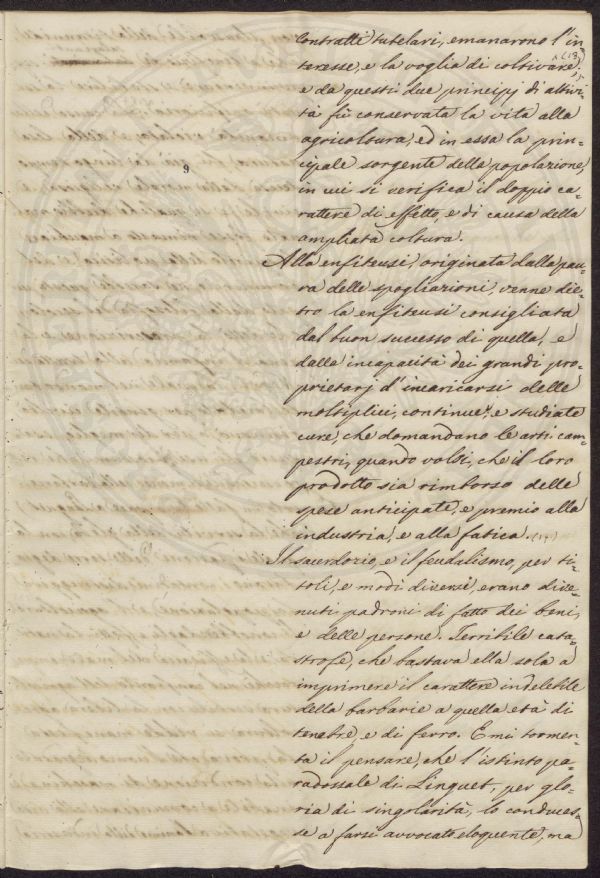 contratti tutelari, emanarono l'in-
teresse, e la voglia di coltivare; (13)
e da questi due principj di attivi-
tà fù conservata la vita alla
agricoltura, ed in essa la prin-
cipale sorgente della popolazione,
in cui si verifica il doppio ca-
rattere di effetto, e di causa della
ampliata coltura.
Alla enfiteusi, originata dalla pau-
ra delle spogliazioni, venne die-
tro la enfiteusi consigliata
dal buon successo di quella, e
dalla incapacità dei grandi pro-
prietarj d'incaricarsi delle
moltiplici, continue, e studiate
cure, che domandano le arti cam-
pestri, quando volsi, che il loro
prodotto sia rimborso delle
spese anticipate, e premio alla
industria, e alla fatica.
Il sacerdozio, e il feudalismo, per ti-
toli, e modi diversi, erano dive-
nuti padroni di fatto dei beni,
e delle persone. Terribile cata-
strofe, che bastava ella sola a
imprimere il carattere indelebile
della barbarie a quella età di
tenebre, e di ferro. E mi tormen-
ta il pensare, che l'istinto pa-
radossale di Linguet, per glo-
ria di singolarità, lo conduces-
se a farsi avvocato eloquente, ma